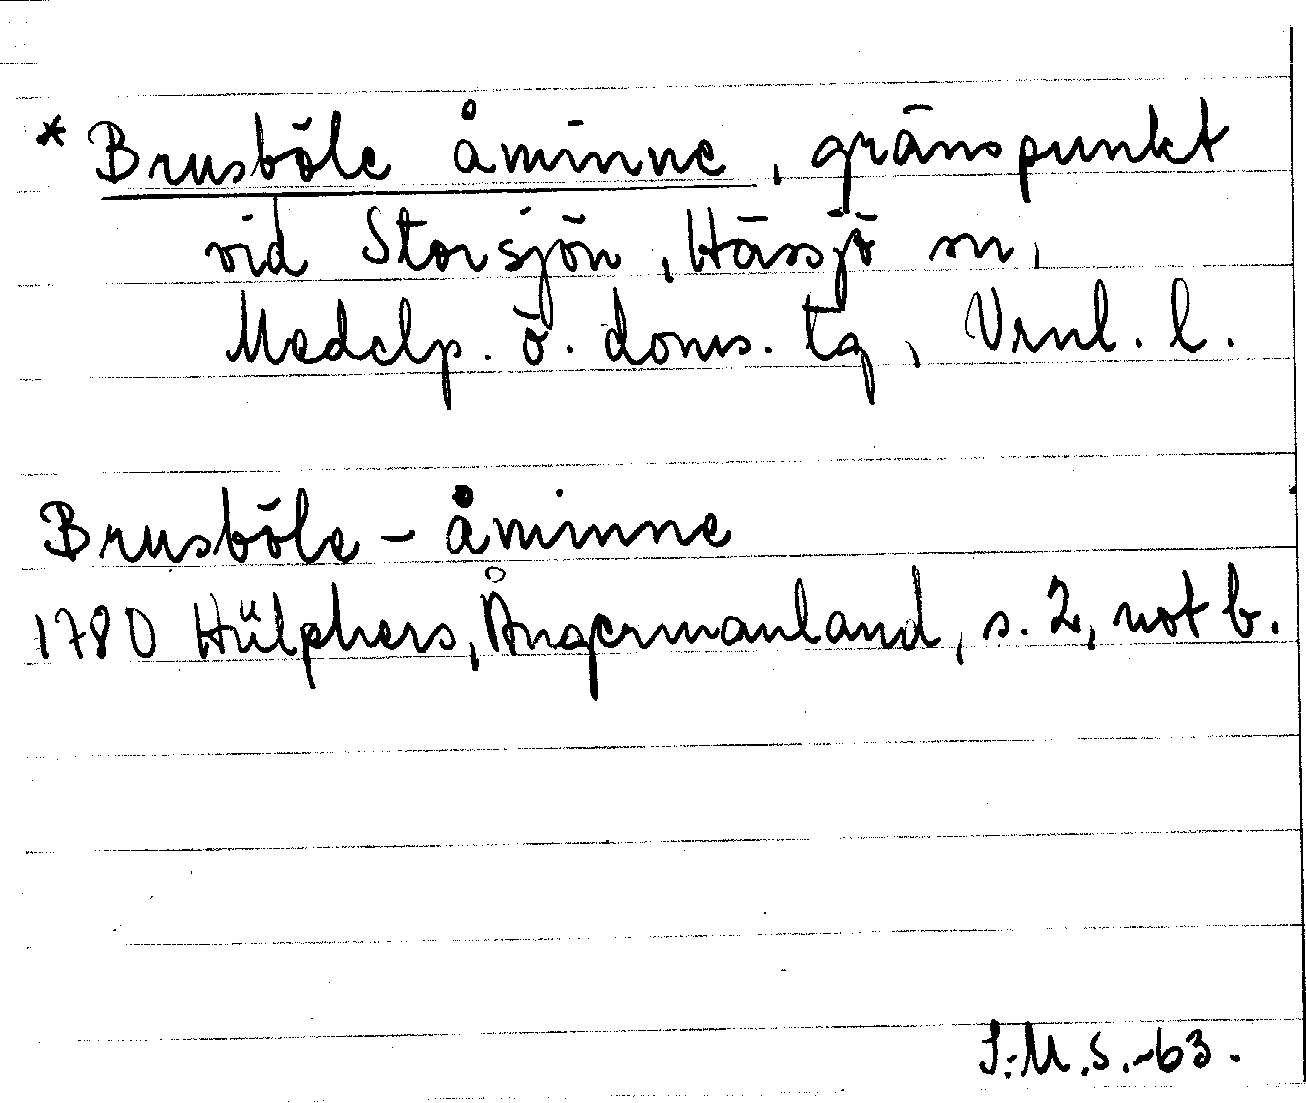 * Brusböle åminne, gränspunkt
vid Storsjön, Hässjö sn,
Medelp. ö. doms. tg, Vrnl. l.
Brusböle - åminne
1780 Hülphers, Ångermanland, s. 2, not b.
S.M.S.-63.